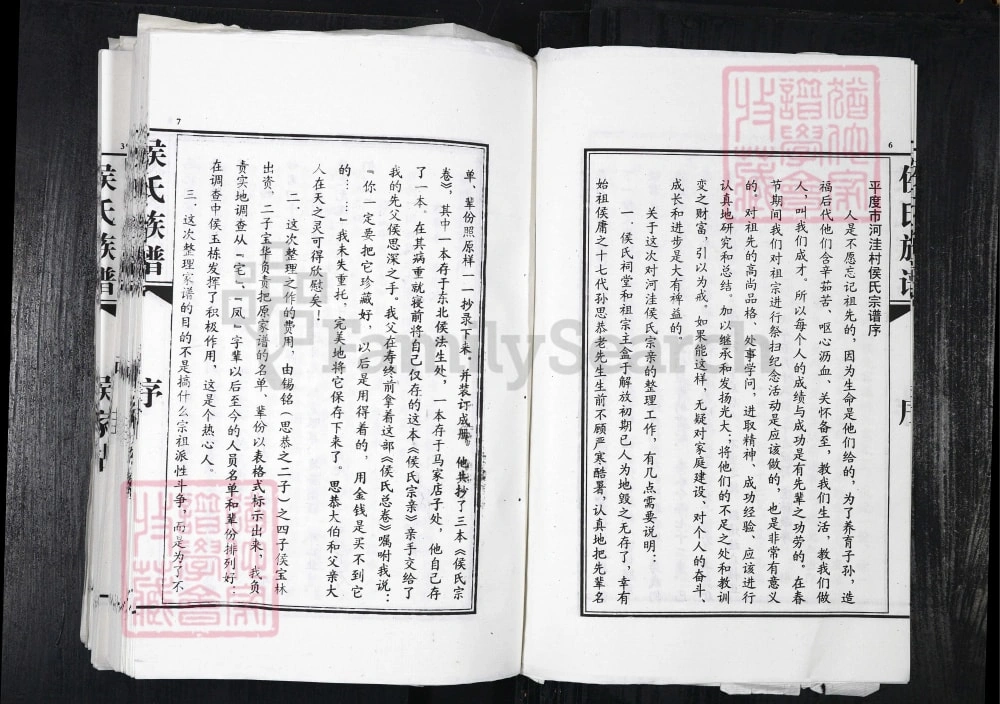 6
侯氏族谱
序
平度市河洼村侯氏宗谱序
人是不愿忘记祖先的，因为生命是他们给的，为了养育子孙，造
福后代他们含辛茹苦、呕心沥血、关怀备至，教我们生活，教我们做
人，叫我们成才。所以每个人的成绩与成功是有先辈之功劳的。在春
节期间我们对祖宗进行祭扫纪念活动是应该做的，也是非常有意义
的。对祖先的高尚品格、处事学问，进取精神、成功经验、应该进行
认真地研究和总结。加以继承和发扬光大；将他们的不足之处和教训
变之财富，引以为戒。如果能这样，无疑对家庭建设、对个人的奋斗、
成长和进步是大有裨益的。
关于这次对河洼侯氏宗亲的整理工作，有几点需要说明：
一、侯氏祠堂和祖宗主盒于解放初期已人为地毁之无存了，幸有
始祖侯庸之十七代孙思恭老先生生前不顾严寒酷署，认真地把先辈名
7
单、辈份照原样一一抄录下来。并装订成册。他共抄了三本《侯氏宗
卷》，其中一本存于东北侯法生处，一本存于马家店子处，他自己存
了一本。在其病重就寝前将自己存的这本《侯氏宗亲》亲手交给了
我的先父侯思深之手。我父在寿终前拿着这部《侯氏总卷》嘱咐我说：
“你一定要把它珍藏好，以后是用得着的，用金钱是买不到它
的……”我未失重托，完美地将它保存下来了。思恭大伯和父亲大
人在天之灵可得欣慰矣！
二、这次整理之作的费用，由锡铭（思恭之二子）之四子侯宝林
出资，二子宝华负责把原家谱的名单、辈份以表格式标示出来，我负
责实地调查从“宅”、“凤”字辈以后至今的人员名单和辈份排列好；
在调查中侯玉栋发挥了积极作用，这是个热心人。
三、这次整理家谱的目的不是搞什么宗祖派性斗争，而是为了不
侯氏族谱
序
3
侯氏族谱
FamilySearch